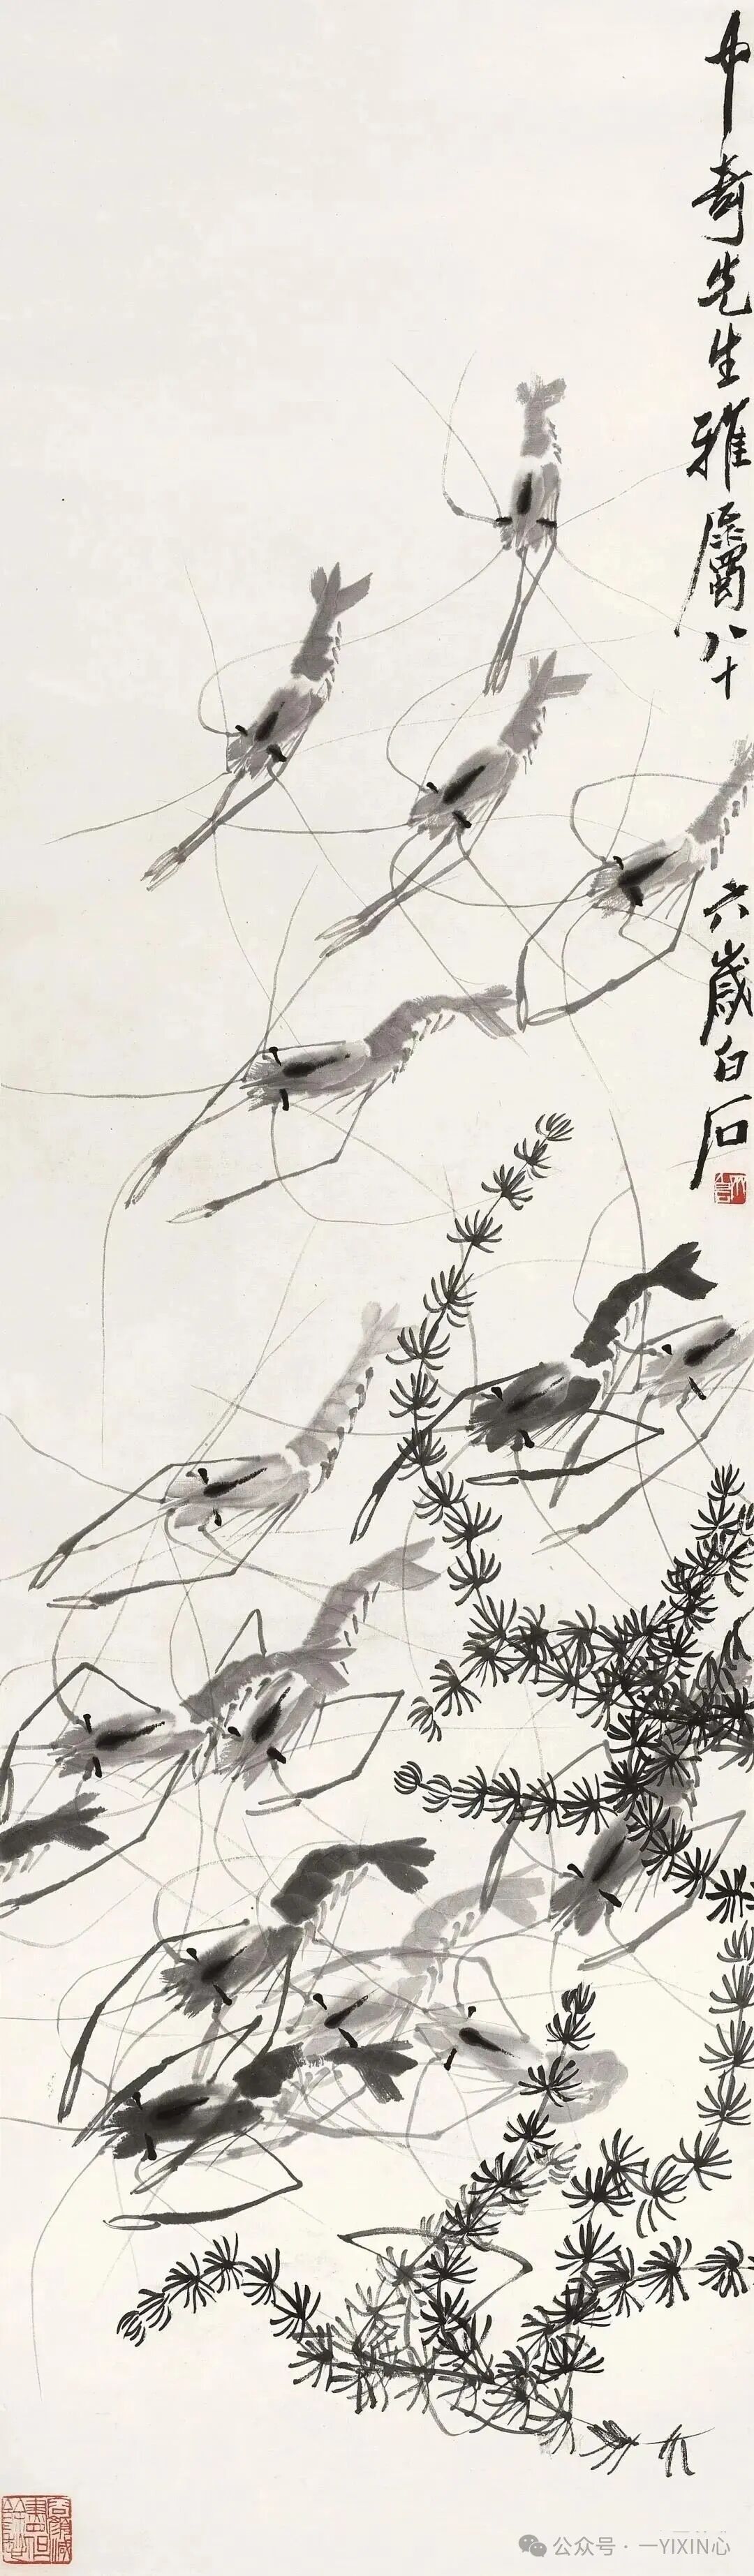 奇先生雅屬八十六歲白石
公众号 · 一YIXIN心